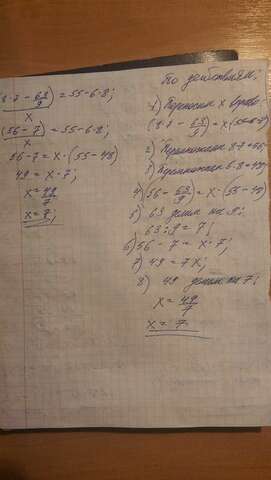 (8·7 - 63/9) / x = 55-6·8;
(56-7) / x = 55-6·8;
56-7 = x·(55-48)
49 = x·7;
x = 49/7
x = 7;
По действиям:
1) Переносим x вправо
(8·7 - 63/9) = x·(55-6·7)
2) Перемножаем 8·7=56;
3) Перемножаем 6·8=48;
4) (56 - 63/9) = x·(55-48)
5) 63 делим на 9:
63:9=7;
6) 56 - 7 = x·7;
7) 49 = 7x;
8) 49 делим на 7;
x = 49/7
x = 7;